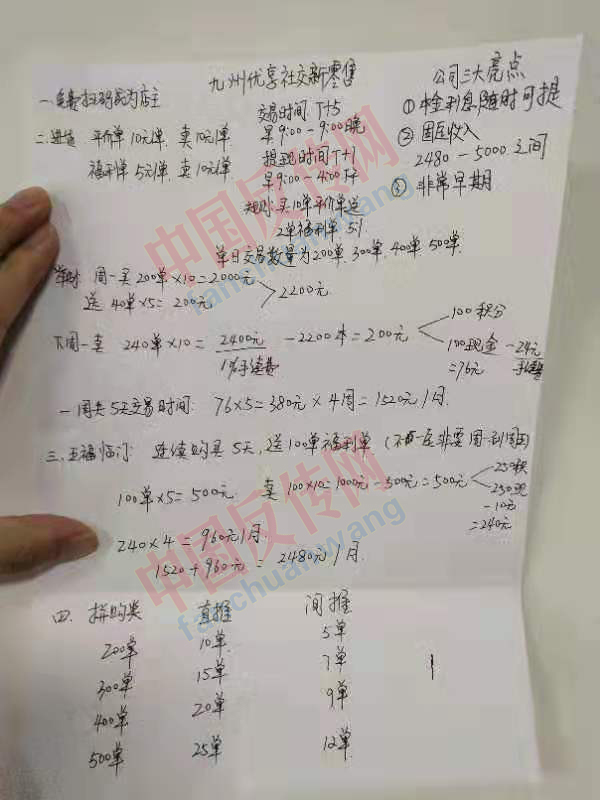 九州优享社交新零售
公司三大亮点
一免费扫码成为店主
交易时间 T+5
早9:00-9:00晚
提现时间T+1
早9:00-4:00下午
规则:买10单平价单送
2单福利单 5:1
① 本金利息随时可提
② 固定收入
2480-5000之间
③ 非常早期
平价单 10元/单 卖10元/单
福利单 5元/单 卖10元/单
单日交易数量为200单、300单、400单、500单.
周一买200单×10=2000元
送 40单×5=200元
2200元
下周一卖 240单×10=2400元-2200本=200元
1%手续费
100积分
100现金-24元
=76元 手续费
一周共5天交易时间: 76×5=380元×4周=1520元/月.
三、五福临门: 连续购买5天,送100单福利单(不一定非要周一到周五)
100单×5=500元 卖100×10=1000元-500元=500元
250积
250现
-10元
=240元
240×4=960元/月.
1520+960元=2480元/月.
四、拼购类 直推 间推
200单 10单 5单
300单 15单 7单
400单 20单 9单
500单 25单 12单
中国反传网
fanchuanwang
中国反传网
fanchuanwang